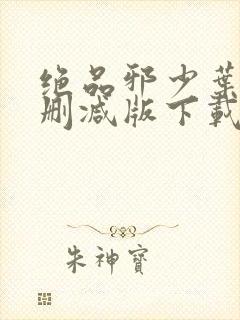 绝品邪少葉
删减版下載
朱神寶